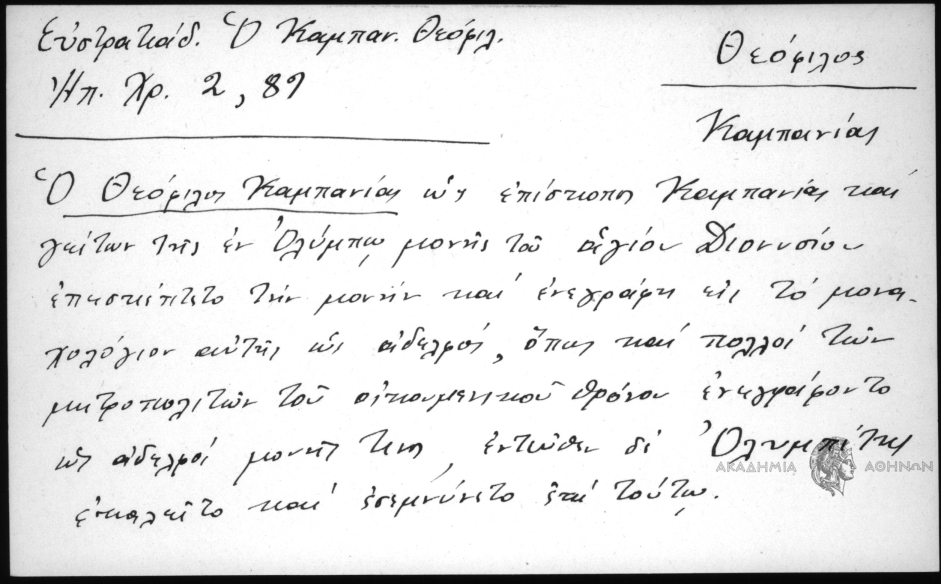 Εὐστρατιάδ. Ὁ Καμπαν. Θεόφιλ.
Ἠπ. Χρ. 2, 89
Θεόφιλος
Καμπανίας
Ὁ Θεόφιλος Καμπανίας ὡς ἐπίσκοπος Καμπανίας καὶ
γείτων τῆς ἐν Ὀλύμπῳ μονῆς τοῦ ἁγίου Διονυσίου
ἐπεσκέπτετο τὴν μονὴν καὶ ἐνεγράφη εἰς τὸ μονα-
χολόγιον αὐτῆς ὡς ἀδελφός, ὅπως καὶ πολλοὶ τῶν
μητροπολιτῶν τοῦ οἰκουμενικοῦ θρόνου ἐνεγράφοντο
ὡς ἀδελφοὶ μονῆς τινος, ἐντεῦθεν δὲ Ὀλυμπίτης
ἐκαλεῖτο καὶ ἐσεμνύνετο ἐπὶ τούτῳ.
ΑΚΑΔΗΜΙΑ ΑΘΗΝΩΝ